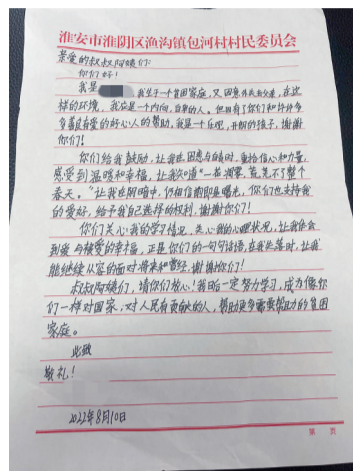 淮安市淮阴区渔沟镇包河村村民委员会
亲爱的叔叔阿姨们:
你们好!
我是 我生于一个贫困家庭,又因意外失去父亲,在这
样的环境,我应是一个内向,自卑的人。但因有了你们和许许多
多善良有爱的好心人的帮助,我是一个乐观,开朗的孩子,谢谢
你们!
你们给我鼓励,让我在困惑与自卑时,重拾信心和力量,
感受到温暖和幸福,让我知道“一花凋零,荒芜不了整个
春天。”让我在阴暗中,仍相信黎明是曙光,你们也支持我
的爱好,给予我自己选择的权利,谢谢你们!
你们关心我的学习情况,关心我的心理状况,让我体会
到爱与被爱的幸福,正是你们的一句句话语,在我失落时,让我
能继续从容的面对将来和曾经,谢谢你们!
叔叔阿姨们,请你们放心!我日后一定努力学习,成为像你
们一样对国家,对人民有贡献的人,帮助更多需要帮助的贫困
家庭。
此致
敬礼!
2022年8月10日
第 页